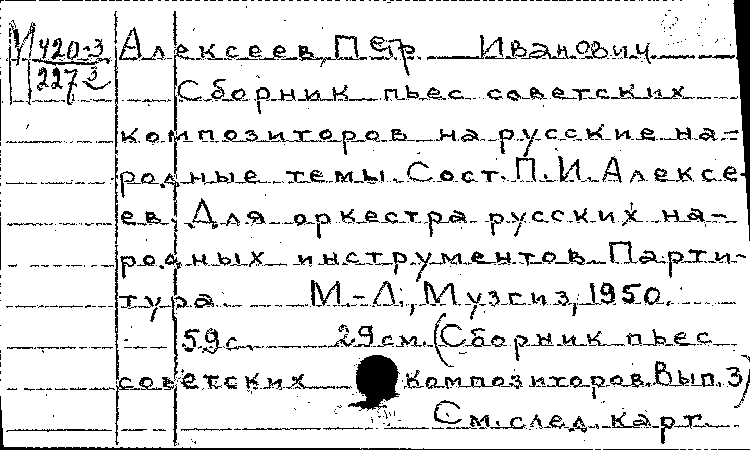 М 420-3 Алексеев, Петр Иванович
227 2 Сборник пьес советских
композиторов на русские на-
родные темы. Сост. П. И. Алексе-
ев. Для оркестра русских на-
родных инструментов. Парти-
тура. М.-Л., Музгиз, 1950.
59 с. 29 см. (Сборник пьес
советских композиторов. Вып. 3)
См. след. карт.